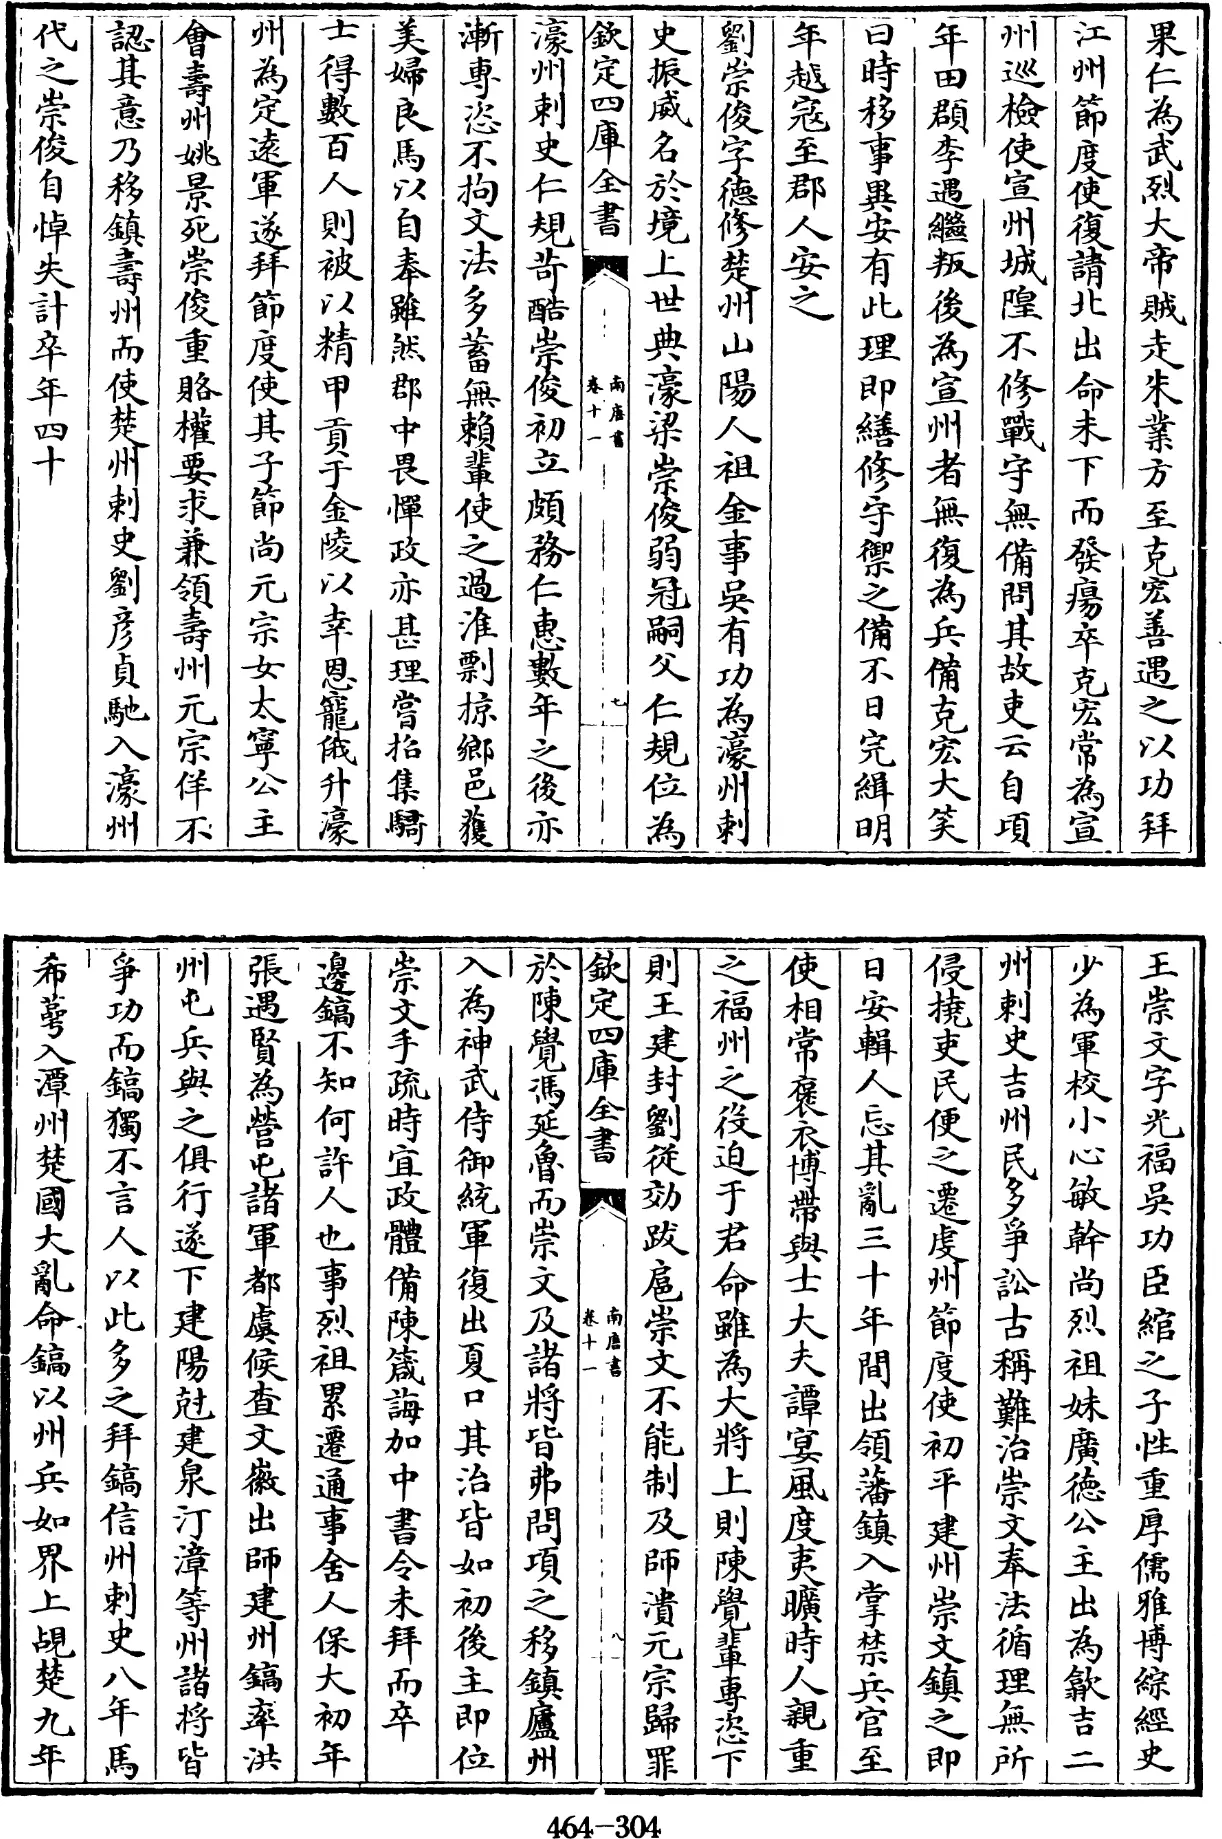 果仁為武烈大帝賊走朱業方至克宏善遇之以功拜
江州節度使復請北出命未下而發瘍卒克宏常為宣
州巡檢使宣州城隍不修戰守無備問其故吏云自頃
年田頵李遇繼叛後為宣州者無復為兵備克宏大笑
曰時移事異安有此理即繕修守禦之備不日完緝明
年越寇至郡人安之
劉崇俊字德修楚州山陽人祖金事吳有功為濠州刺
史振威名於境上世典濠梁崇俊弱冠嗣父仁規位為
欽定四庫全書
南唐書
卷十一
七
濠州刺史仁規苛酷崇俊初立頗務仁惠數年之後亦
漸專恣不拘文法多蓄無賴輩使之過淮剽掠鄉邑獲
美婦良馬以自奉雖然郡中畏憚政亦甚理嘗招集驕
士得數百人則被以精甲貢于金陵以幸恩寵俄升濠
州為定遠軍遂拜節度使其子節尚元宗女太寧公主
會壽州姚景死崇俊重賂權要求兼領壽州元宗佯不
認其意乃移鎮壽州而使楚州刺史劉彥貞馳入濠州
代之崇俊自悼失計卒年四十
王崇文字光福吳功臣綰之子性重厚儒雅博綜經史
少為軍校小心敏幹尚烈祖妹廣德公主出為歙吉二
州刺史吉州民多爭訟古稱難治崇文奉法循理無所
侵撓吏民便之遷虔州節度使初平建州崇文鎮之即
日安輯人忘其亂三十年間出領藩鎮入掌禁兵官至
使相常褒衣博帶與士大夫譚宴風度夷曠時人親重
之福州之役迫于君命雖為大將上則陳覺輩專恣下
則王建封劉從効跋扈崇文不能制及師潰元宗歸罪
欽定四庫全書
南唐書
卷十一
八
於陳覺馮延魯而崇文及諸將皆弗問項之移鎮廬州
入為神武侍御統軍復出夏口其治皆如初後主即位
崇文手疏時宜政體備陳箴誨加中書令未拜而卒
邊鎬不知何許人也事烈祖累遷通事舍人保大初年
張遇賢為營屯諸軍都虞候查文徽出師建州鎬率洪
州屯兵與之俱行遂下建陽尅建泉汀漳等州諸將皆
爭功而鎬獨不言人以此多之拜鎬信州刺史八年馬
希萼入潭州楚國大亂命鎬以州兵如界上覘楚九年
464-304